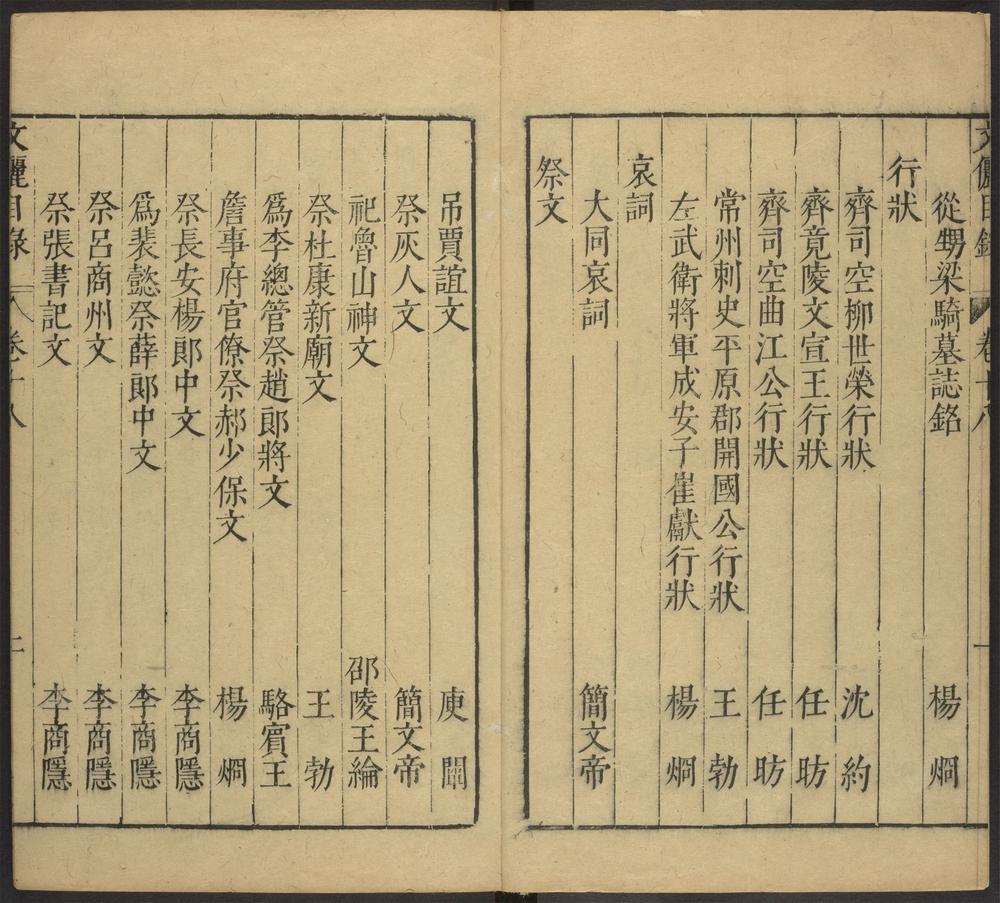 文儷目錄 卷十八 一
從甥梁騎墓誌銘 楊烱
行狀
齊司空柳世榮行狀 沈約
齊竟陵文宣王行狀 任昉
齊司空曲江公行狀 任昉
常州刺史平原郡開國公行狀 王勃
左武衛將軍成安子崔獻行狀 楊烱
哀詞
大同哀詞 簡文帝
祭文
吊賈誼文 庾闡
祭灰人文 簡文帝
祀魯山神文 邵陵王綸
祭杜康新廟文 王勃
爲李總管祭趙郎將文 駱賓王
詹事府官僚祭郝少保文 楊烱
祭長安楊郎中文 李商隱
爲裴懿祭薛郎中文 李商隱
祭呂商州文 李商隱
祭張書記文 李商隱
文儷目錄 卷十八 二